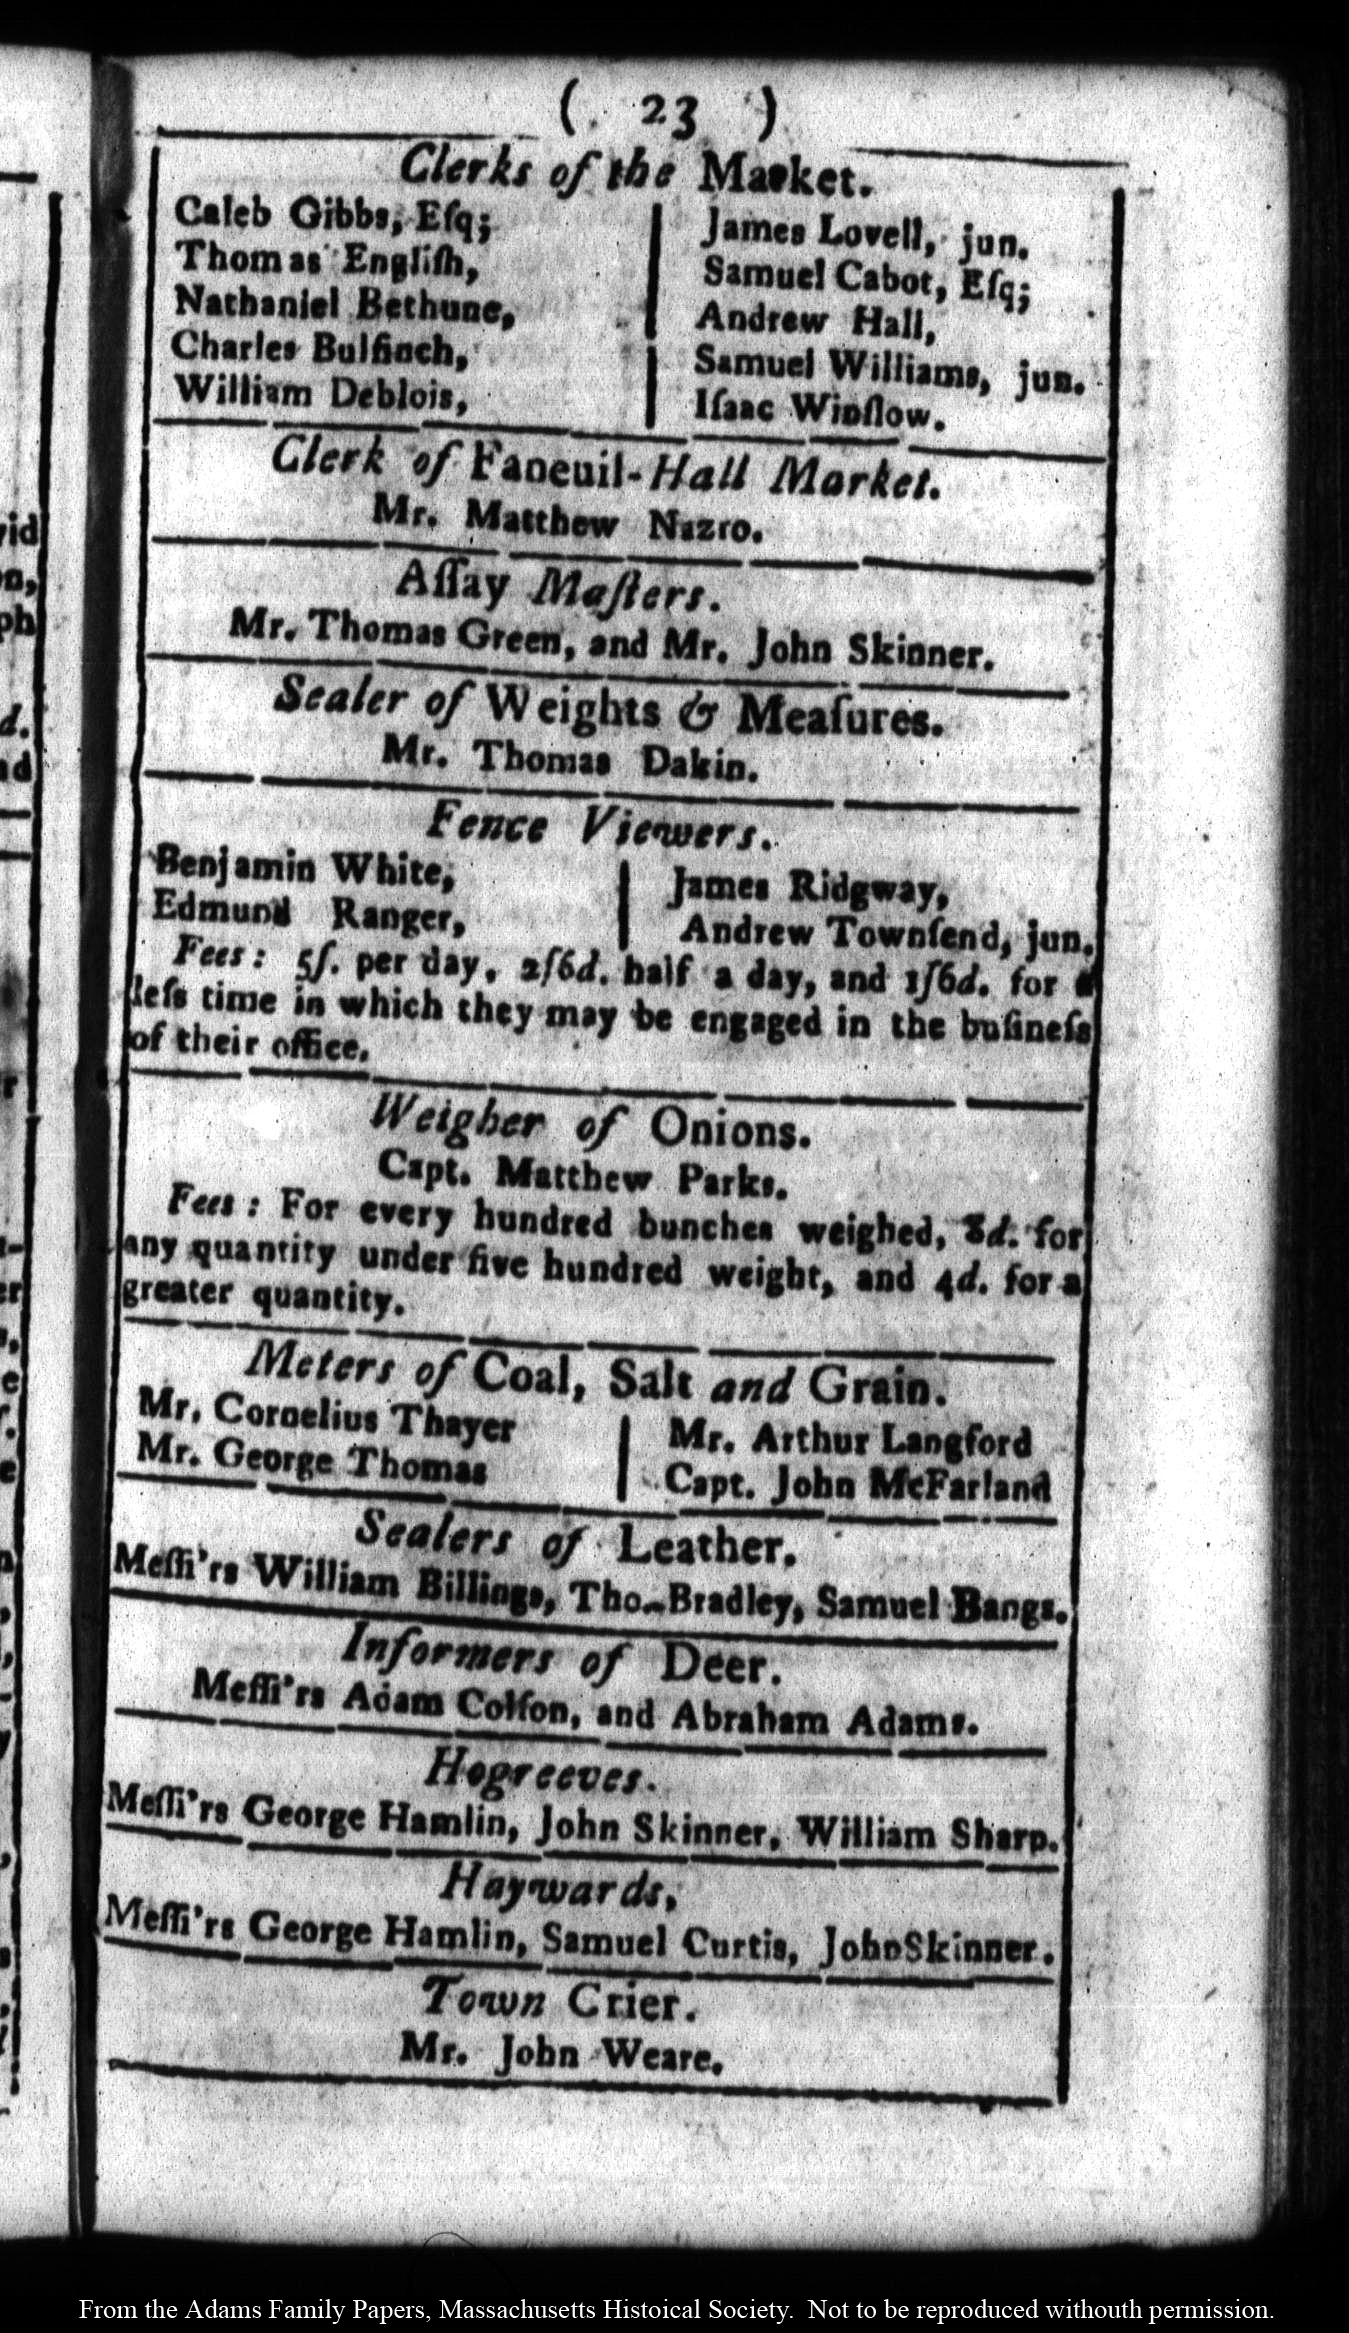 ( 23 )
Clerks of the Market.
Caleb Gibbs, Eſq;
Thomas Engliſh,
Nathaniel Bethune,
Charles Bulfinch,
William Deblois,
James Lovell, jun.
Samuel Cabot, Eſq;
Andrew Hall,
Samuel Williams, jun.
Iſaac Winſlow.
Clerk of Faneuil-Hall Market.
Mr. Matthew Nazro.
Aſſay Maſters.
Mr. Thomas Green, and Mr. John Skinner.
Sealer of Weights & Meaſures.
Mr. Thomas Dakin.
Fence Viewers.
Benjamin White,
Edmund Ranger,
James Ridgway,
Andrew Townſend, jun.
Fees: 5ſ. per day, 2ſ6d. half a day, and 1ſ6d. for a
leſs time in which they may be engaged in the buſineſs
of their office.
Weigher of Onions.
Capt. Matthew Parks.
Fees: For every hundred bunches weighed, 8d. for
any quantity under five hundred weight, and 4d. for a
greater quantity.
Meters of Coal, Salt and Grain.
Mr. Cornelius Thayer
Mr. George Thomas
Mr. Arthur Langford
Capt. John McFarland
Sealers of Leather.
Meſſi'rs William Billings, Tho. Bradley, Samuel Bangs.
Informers of Deer.
Meſſi'rs Adam Colſon, and Abraham Adams.
Hogreeves.
Meſſi'rs George Hamlin, John Skinner, William Sharp.
Haywards,
Meſſi'rs George Hamlin, Samuel Curtis, John Skinner.
Town Crier.
Mr. John Weare.
From the Adams Family Papers, Massachusetts Histoical Society. Not to be reproduced withouth permission.